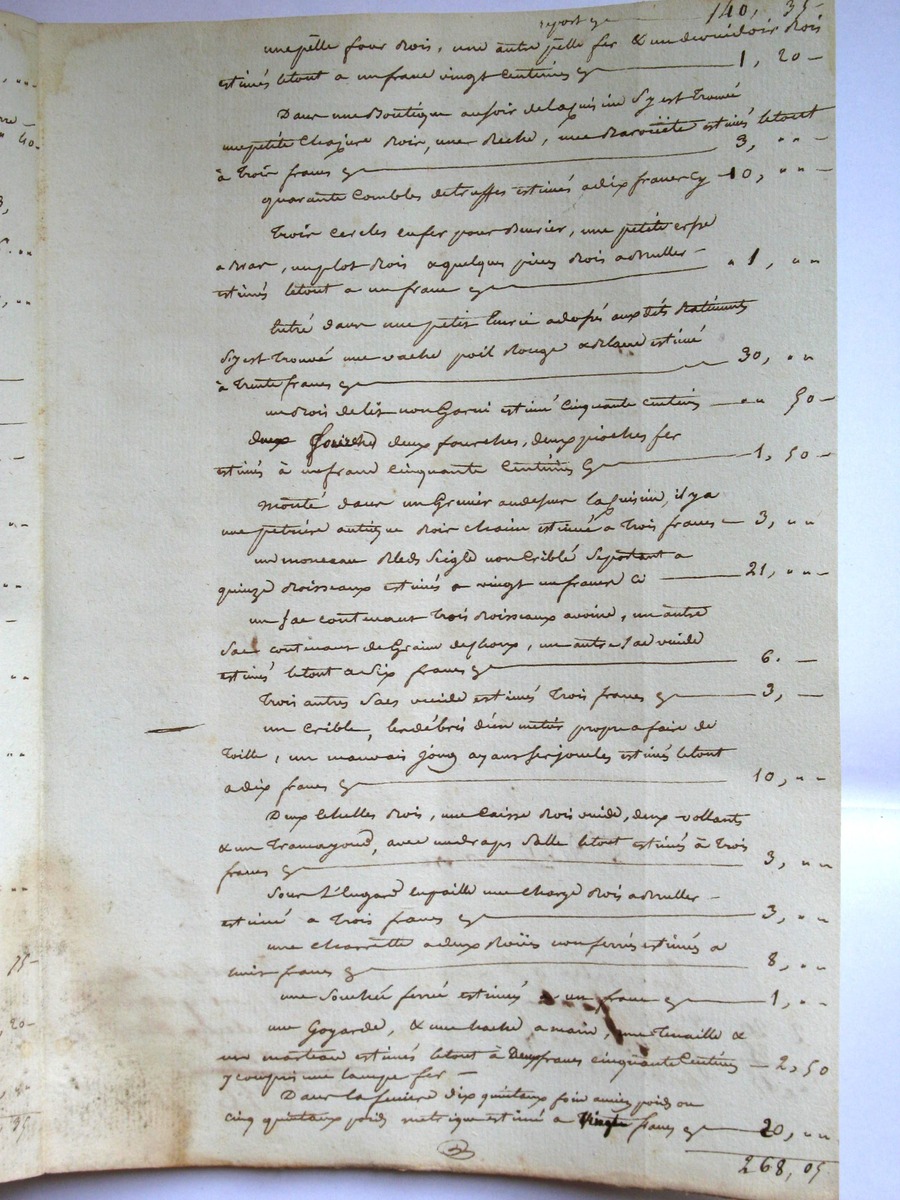 report cy 140, 35
une pelle four bois, une autre pelle fer & un devidoir bois
estimés letout a un franc vingt Centimes cy 1, 20
Dans une Boutique au soir de la cuisine S'y est trouvé
une petite Chajere bois, une beche, une Barouëte estimés letout
à Trois francs cy 3, " "
quarante Combles de truffes estimés a dix francs cy 10, " "
Trois cercles en fer pour Cuvier, une petite
a bras, un plot bois & quelques pieces bois a bruller
estimés letout a un franc cy 1, " "
Entré dans une petite Eurie adossé aux dits Batiments
S'y est trouvé une vache poil Rouge & blanc estimé
à Trente francs cy 30, " "
un bois de lit non Garni estimé Cinquante Centimes " " 50
deux deux fourches, deux pioches fer
estimés à un franc Cinquante Centimes Cy 1, 50
Monté dans un Grenier au dessur la Cuisine, il y a
une petriere antique bois chaine estimée à trois francs 3, " "
un monceau Bled Seigle non Criblé Se portant a
quinze Boisseaux estimés a vingt un francs Ci 21, " "
un Sac contenant trois boisseaux avoine, un autre
Sac contenant de Graine de choux, un autre Sac vuide
estimés letout a Six francs cy 6.
Trois autres Sacs vuide estimés Trois francs cy 3,
un Crible, les débris d'un metier propre a faire de
Toille, un mauvais joug ayant ses joucles estimés letout
a dix francs cy 10, " "
Deux Echelles bois, une Caisse bois vuide, deux vollants
& un avec un draps Salle letout estimés à trois
francs cy 3, " "
Sous L'hugard en paille une charge bois a bruller
estimé a trois francs cy 3, " "
une charrette a deux Roües non ferrés estimés a
huit francs cy 8, " "
une ferrée estimés a un franc cy 1, " "
une Goyarde, & une hache a main, une Tenaille &
un marteau estimés letout à Deux francs cinquante Centimes 2, 50
y compris une lampe fer
Dans la feniere Dix quintaux foin ancien poids ou
cinq quintaux poids metrique estimé a vingt francs cy 20, " "
268, 05